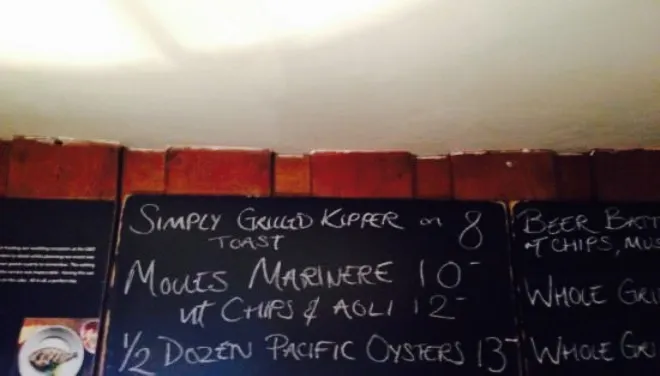 SIMPLY GRILLED KIPPER on 8
TOAST
MOULES MARINERE 10-
wt CHIPS & AOLI 12-
1/2 DOZEN PACIFIC OYSTERS 13-
BEER BATT
wt CHIPS, MUS
WHOLE GRI
WHOLE GRI